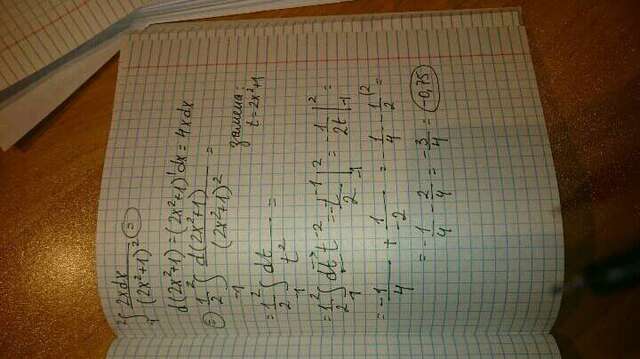 ²∫₋₁ 2xdx/(2x²+1)² =
d(2x²+1) = (2x²+1)'dx = 4xdx
= 1/2 ²∫₋₁ d(2x²+1)/(2x²+1)² =
замена:
t=2x²+1
= 1/2 ²∫₋₁ dt/t² =
= 1/2 ²∫₋₁ dt t⁻² = -t⁻¹/2 |²₋₁ = -1/2t |²₋₁ =
= -1/4 + 1/-2 = -1/4 - 1/2 =
= -1/4 - 2/4 = -3/4 = -0,75